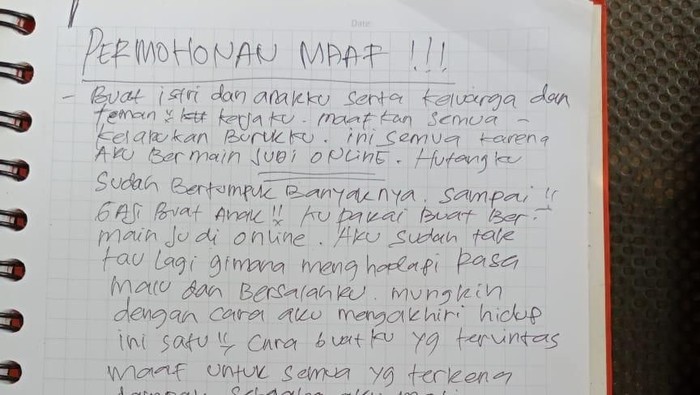 Date:
PERMOHONAN MAAF !!!
- Buat istri dan anakku serta keluarga dan
teman" kerjaku. maafkan semua -
kelakukan Burukku. ini semua karena
AKU Bermain JUDI ONLINE. Hutangku
Sudah Bertumpuk Banyaknya. Sampai"
GAJI Buat Anak" ku pakai Buat Ber-
main Judi online. Aku sudah tak
tau lagi gimana menghadapi Rasa
Malu dan Bersalahku. mungkin
dengan cara aku mengakhiri hidup
ini satu" cara buatku yg terlintas
maaf untuk semua yg terkena